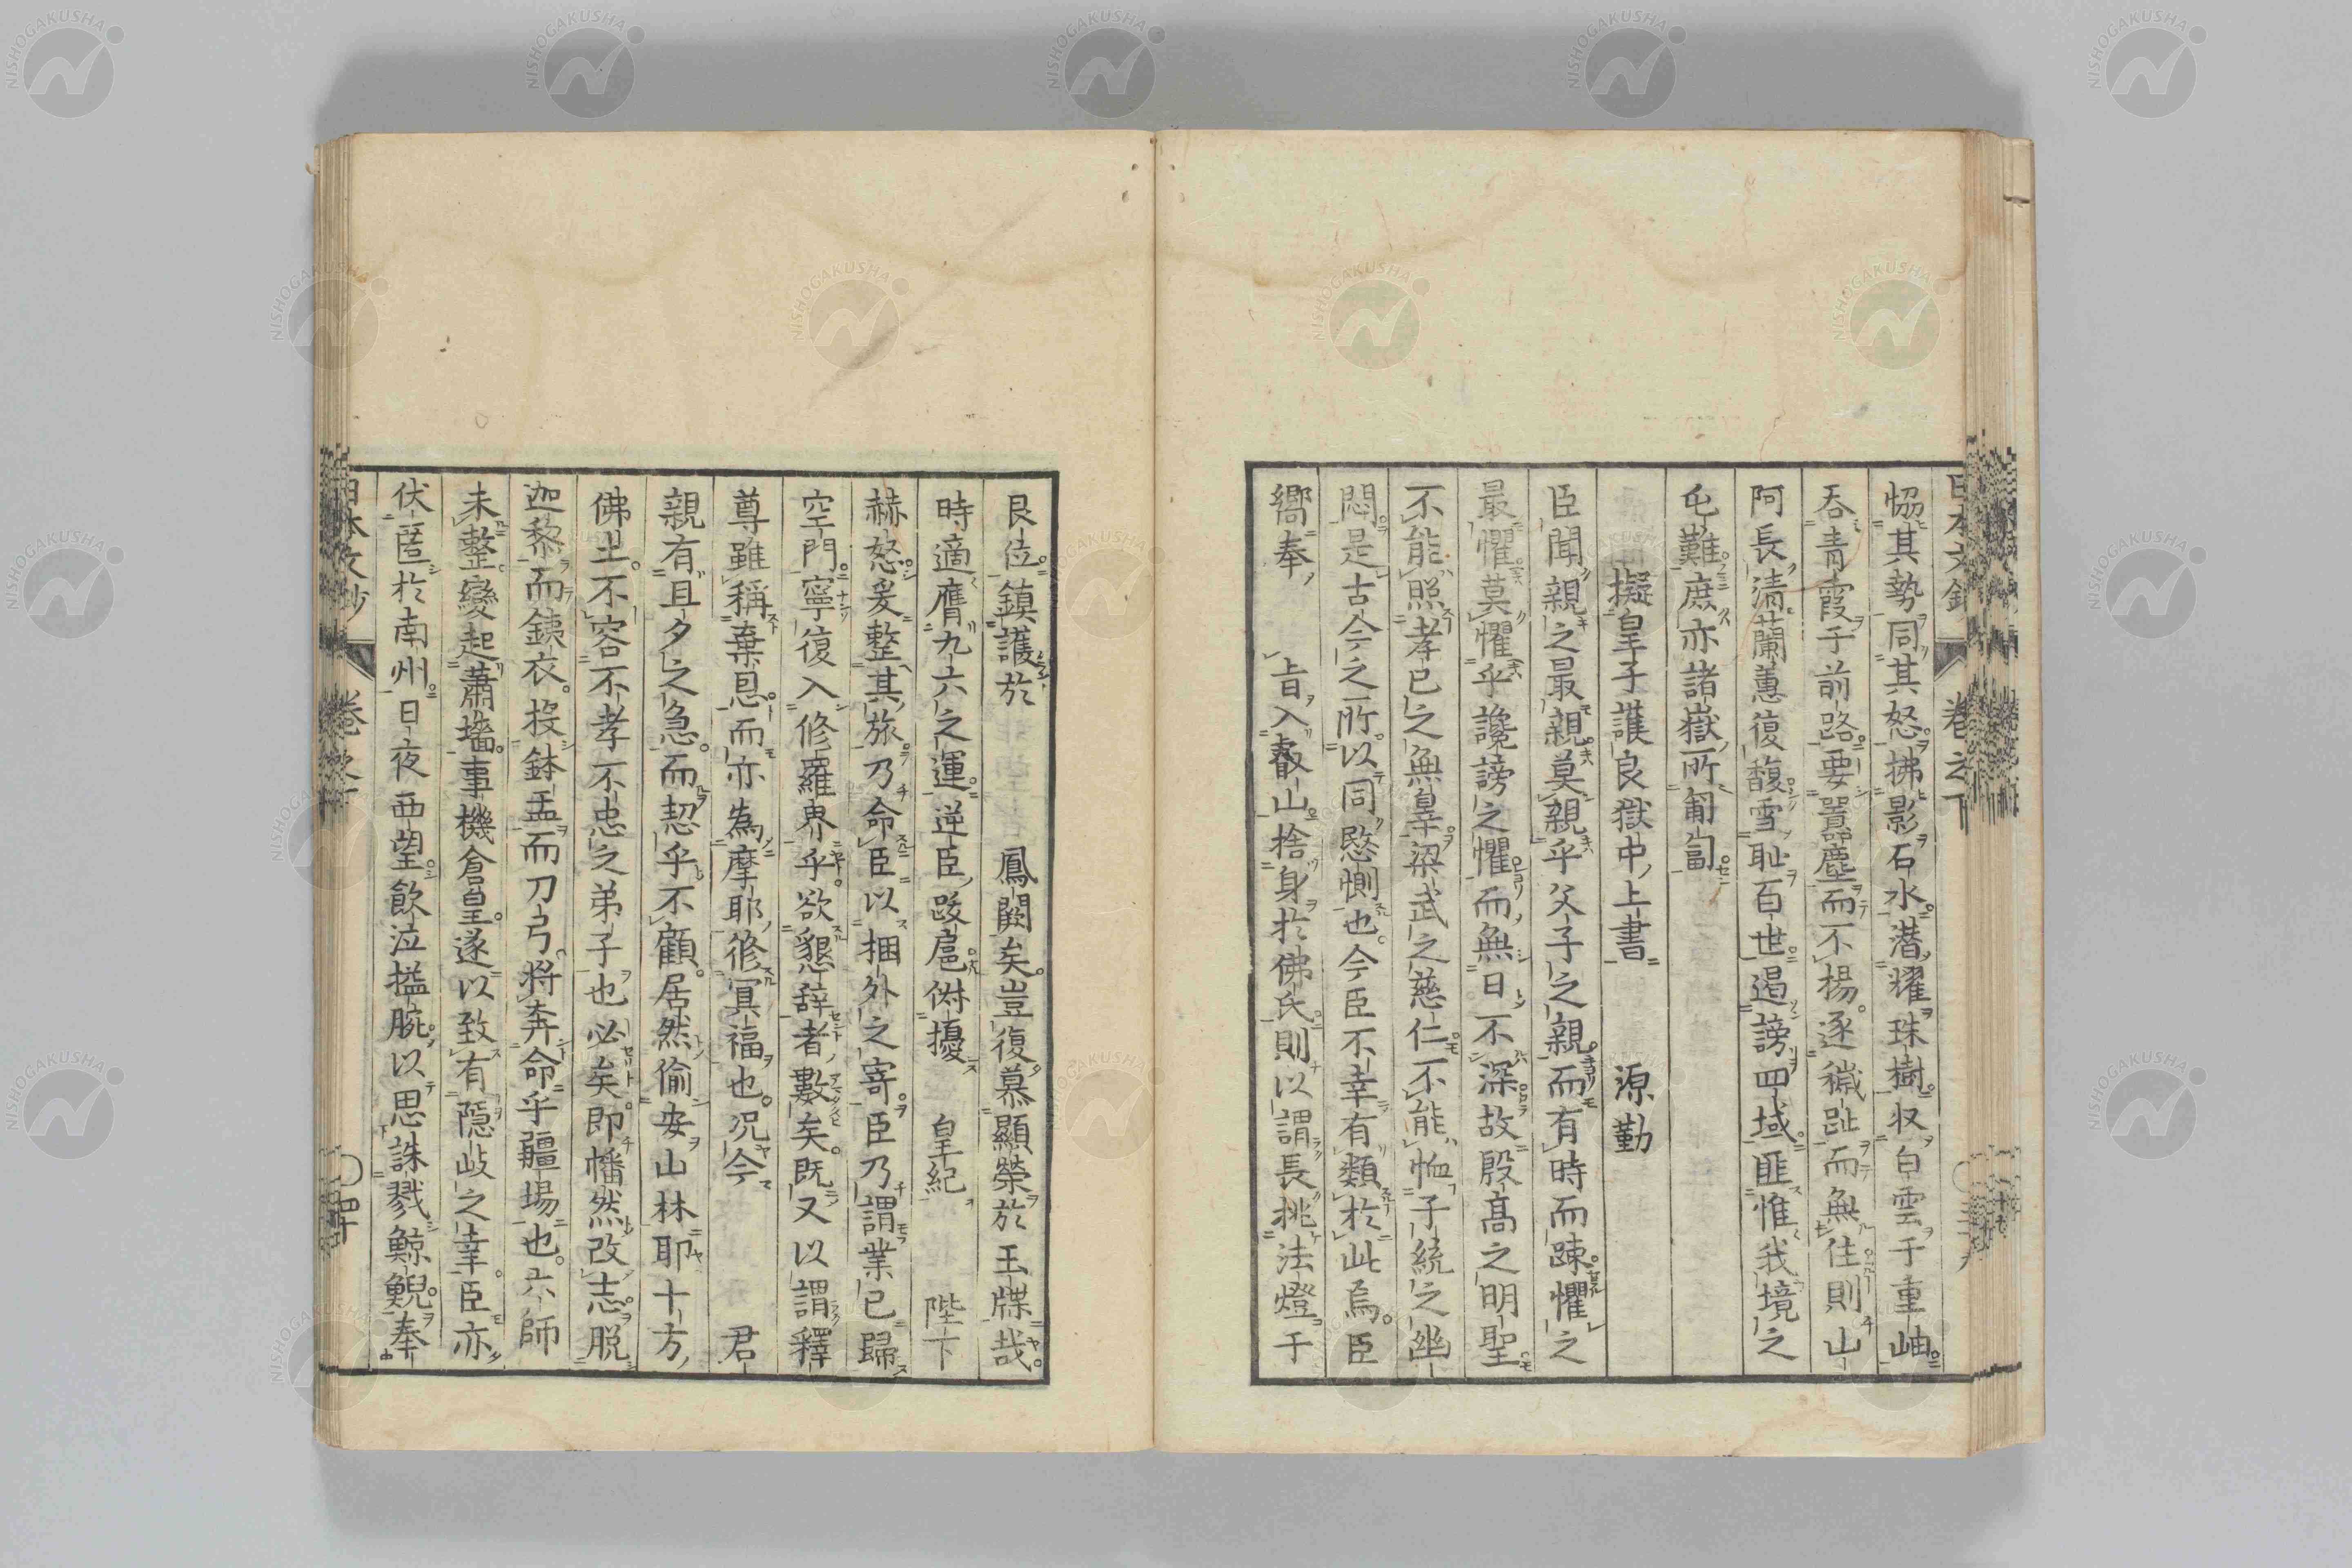 日本文鈔 卷之下
恊其勢同其怒拂影石水潜耀珠樹収白雲于重岫
呑青霞于前路要囂塵而不揚逐穢趾而無住則山
阿長清蘭蕙復馥雪耻百世遏謗四域匪惟我境之
屯難庶亦諸嶽所匍匐
擬皇子護良獄中上書 源勤
臣聞親之最親莫親乎父子之親而有時而踈懼之
最懼莫懼乎讒謗之懼而無日不深故殷高之明聖
不能照孝已之無辜梁武之慈仁不能恤子統之幽
悶是古今之所以同愍惻也今臣不幸有類於此焉臣
嚮奉 旨入叡山捨身於佛氏則以謂長挑法燈于
艮位鎮護於 鳳闕矣豈復慕顯榮於玉牒哉
時適膺九六之運逆臣跋扈俯擾 皇紀 陛下
赫怒爰整其旅乃命臣以捆外之寄臣乃謂業已歸
空門寧復入修羅界乎欲懇辞者數矣既又以謂釋
尊雖稱棄恩而亦為摩耶修冥福也况今 君
親有旦夕之急而恝乎不顧居然偷安山林耶十方
佛土不容不孝不忠之弟子也必矣即幡然改志脱
迦黎而銕衣投鉢盂而刀弓將奔命乎疆場也六師
未整變起蕭墻事機倉皇遂以致有隠岐之幸臣亦
伏匿於南州日夜西望飲泣搤腕以思誅戮鯨鯢奉
日本文鈔 卷之下 四十